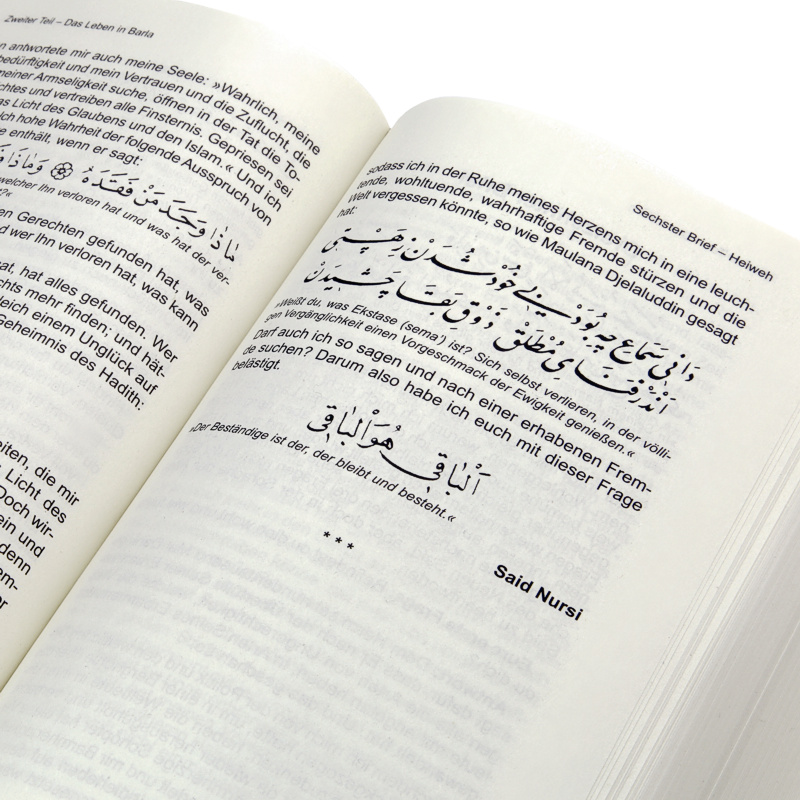 Zweiter Teil – Das Leben in Barla
n antwortete mir auch meine Seele: »Wahrlich, meine
bedürftigkeit und mein Vertrauen und die Zuflucht, die
meiner Armseligkeit suche, öffnen in der Tat die To-
chtes und vertreiben alle Finsternis. Gepriesen sei
as Licht des Glaubens und den Islam.« Und ich
ich hohe Wahrheit der folgende Ausspruch von
e enthält, wenn er sagt:
مَاذَا وَجَدَ مَنْ فَقَدَهُ ۞ وَمَاذَا
welcher Ihn verloren hat und was hat der ver-
?«
en Gerechten gefunden hat, was
d wer Ihn verloren hat, was kann
hat, hat alles gefunden. Wer
chts mehr finden; und hät-
leich einem Unglück auf
Geheimnis des Hadith:
eiten, die mir
Licht des
Doch wir-
ein und
denn
em-
er
Sechster Brief – Heiweh
sodass ich in der Ruhe meines Herzens mich in eine leuch-
tende, wohltuende, wahrhaftige Fremde stürzen und die
Welt vergessen könnte, so wie Maulana Djelaluddin gesagt
hat:
دَانِي سَمَاعِ چِه بُوَدْ بِي خُودْ شُدَنْ زِهَسْتِي
اَنْدَرْ فَنَايِ مُطْلَقْ ذَوْقِ بَقَا چَشِيدَنْ
»Weißt du, was Ekstase (sema') ist? Sich selbst verlieren, in der völli-
gen Vergänglichkeit einen Vorgeschmack der Ewigkeit genießen.«
Darf auch ich so sagen und nach einer erhabenen Frem-
de suchen? Darum also habe ich euch mit dieser Frage
belästigt.
اَلْبَاقِي هُوَ الْبَاقِي
»Der Beständige ist der, der bleibt und besteht.«
* * *
Said Nursi